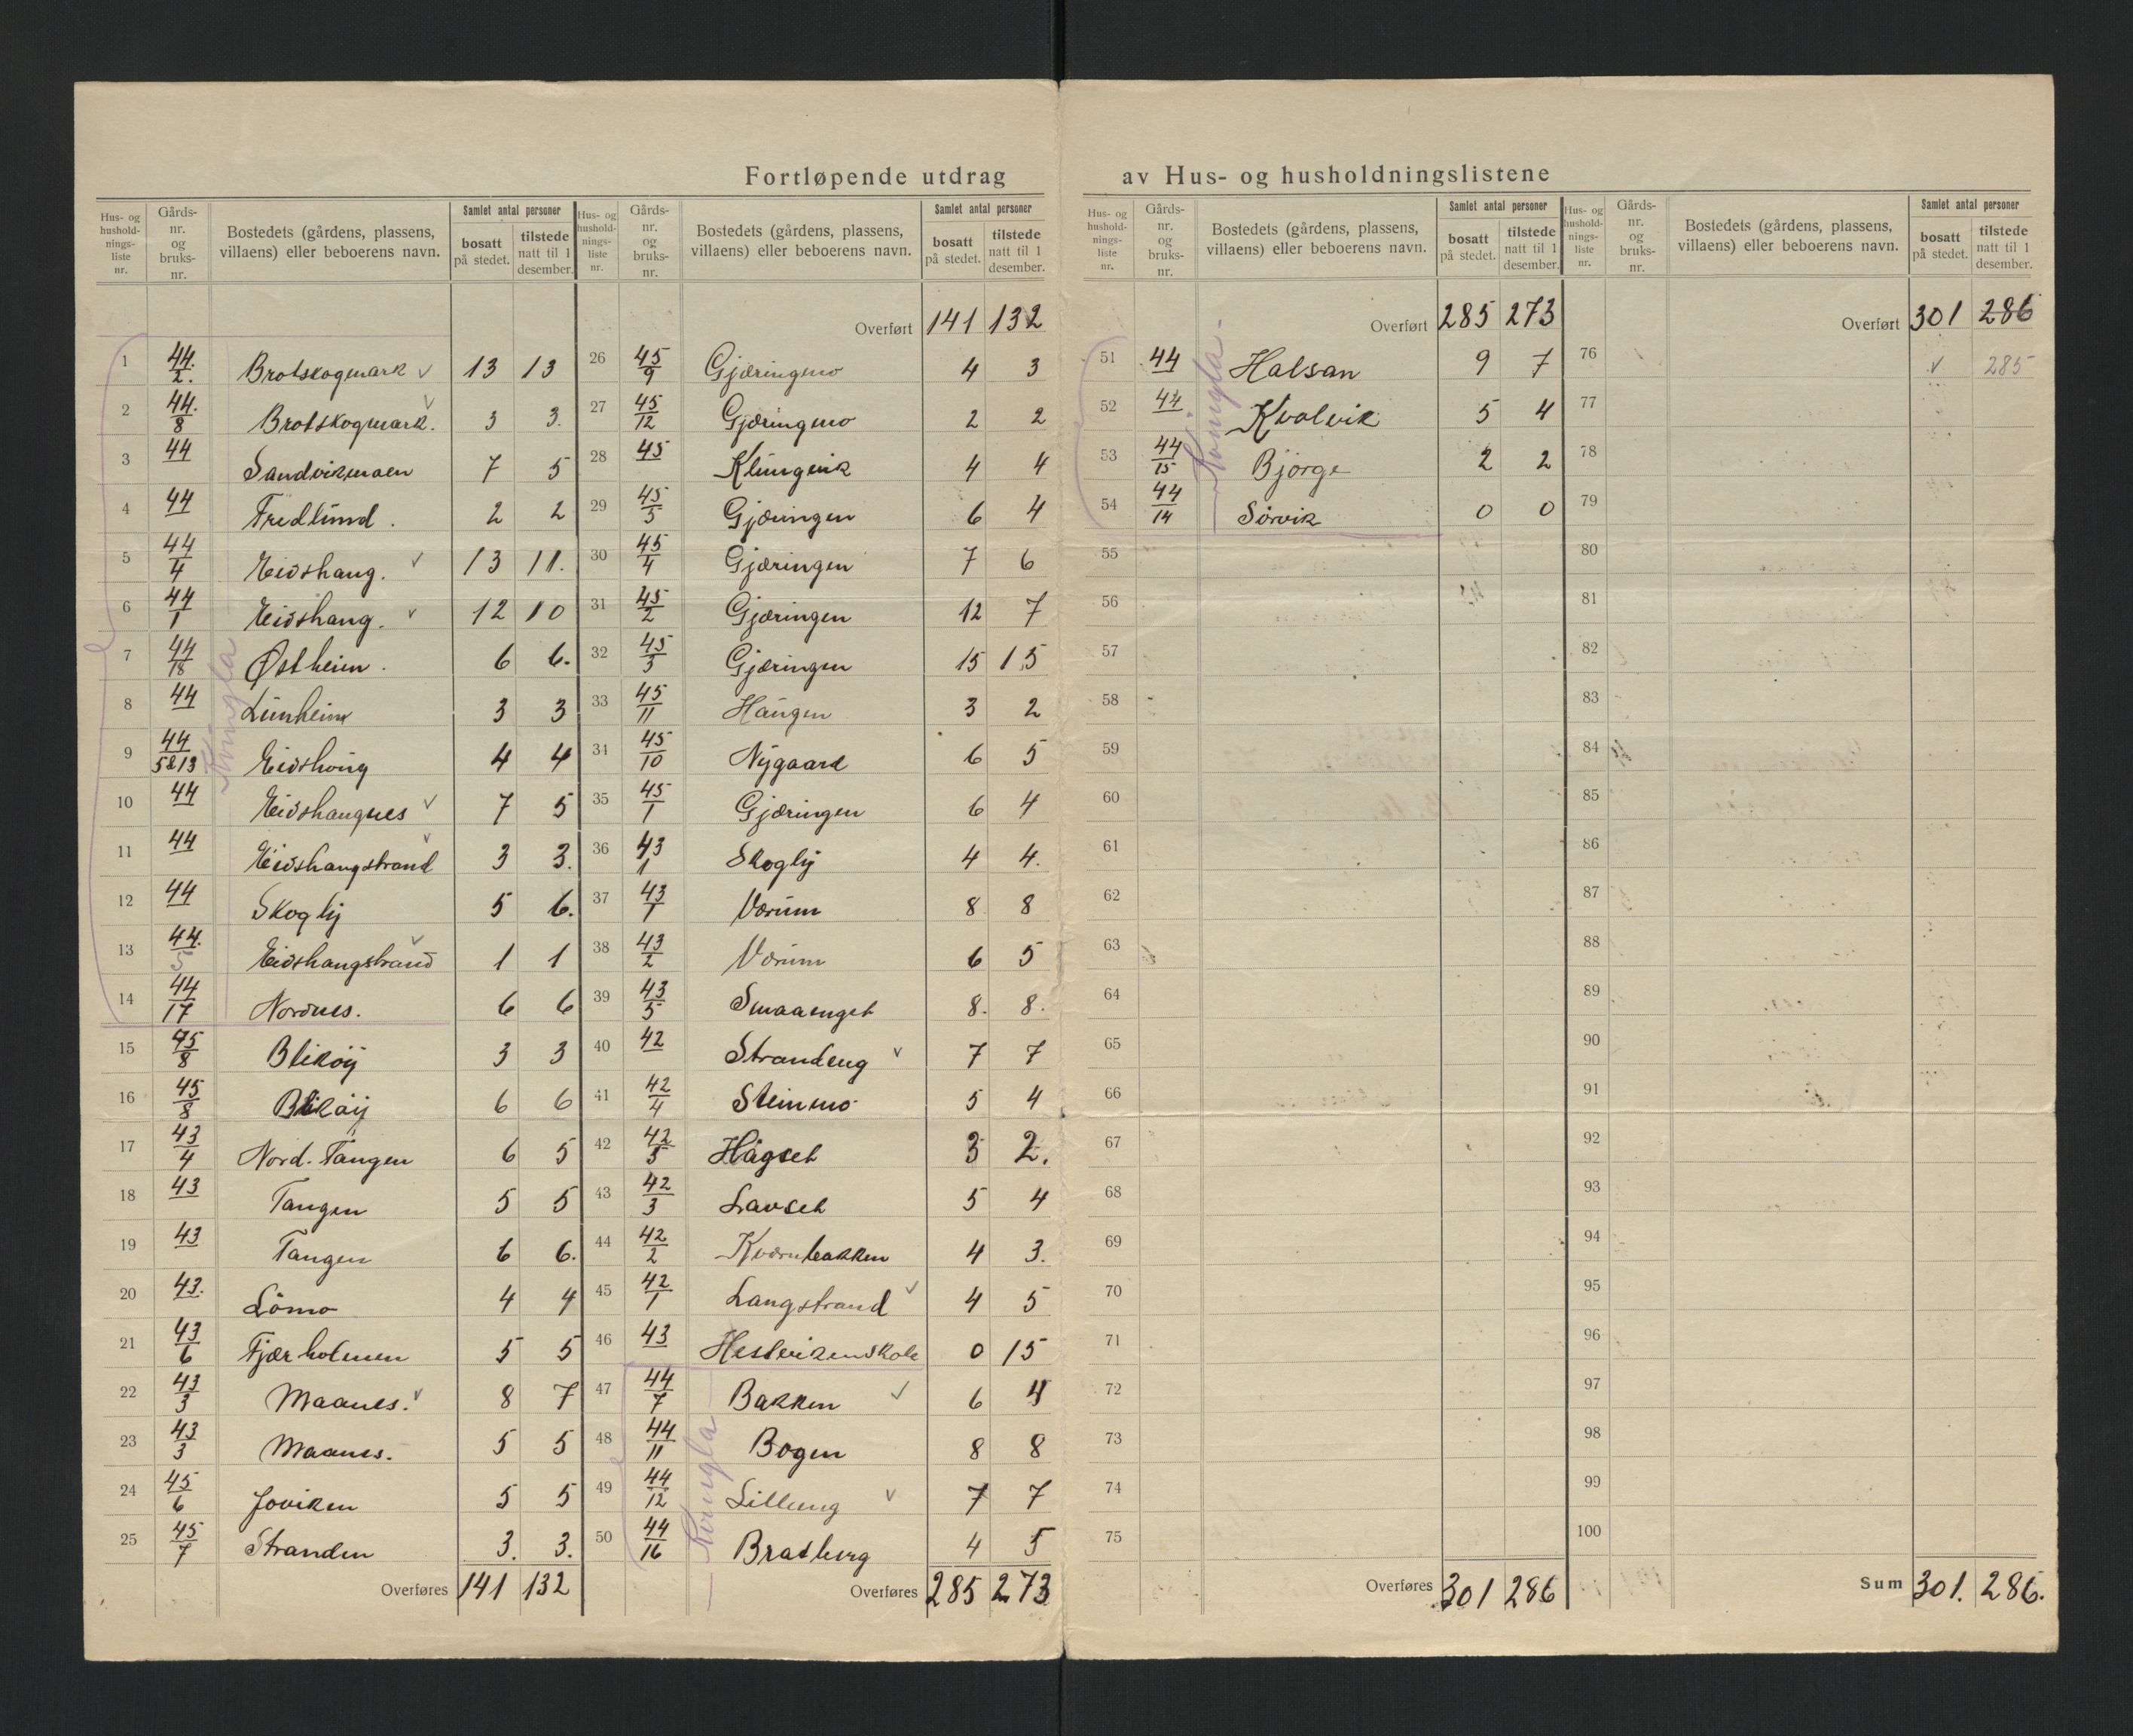 Fortløpende utdrag av Hus- og husholdningslistene
Hus- og hushold-nings-liste nr. | Gårds-nr. og bruks-nr. | Bostedets (gårdens, plassens, villaens) eller beboerens navn. | Samlet antal personer | bosatt på stedet. | tilstede natt til 1 desember.
1 44./2. Brotskogmark ✓ 13 13
2 44./8 Brotskogmark. ✓ 3 3.
3 44 Sandvikmoen 7 5
4 44 Fredlund. 2 2
5 44/4 Eidshaug. ✓ 13 11.
6 44/1 Eidshaug. ✓ 12 10
7 44/18 Østheim. 6 6.
8 44 Lunheim 3 3
9 44/5&13 Eidshaug 4 4
10 44 Eidshaugnes ✓ 7 5
11 44 Eidshaugstrand ✓ 3 3.
12 44 Skogly 5 6.
13 44./5 Eidshaugstrand ✓ 1 1
14 44/17 Nordnes. 6 6
Kvingla
15 45/8 Blikøy 3 3
16 45/8 Blikøy 6 6
17 43/4 Nord. Tangen 6 5
18 43 Tangen 5 5
19 43 Tangen 6 6.
20 43. Lömo 4 4
21 43/6 Fjærholmen 5 5
22 43/3 Maanes. ✓ 8 7
23 43/3 Maanes. 5 5
24 45/6 Joviken 5 5
25 45/7 Stranden 3. 3.
Overføres 141 132
Hus- og hushold-nings-liste nr. | Gårds-nr. og bruks-nr. | Bostedets (gårdens, plassens, villaens) eller beboerens navn. | Samlet antal personer | bosatt på stedet. | tilstede natt til 1 desember.
Overført 141 132
26 45/9 Gjæringmo 4 3
27 45/12 Gjæringmo 2 2
28 45 Klungvik 4 4
29 45/5 Gjæringen 6 4
30 45/4 Gjæringen 7 6
31 45/2 Gjæringen 12 7
32 45/3 Gjæringen 15 15
33 45/11 Haugen 3 2
34 45/10 Nygaard 6 5
35 45/1 Gjæringen 6 4
36 43/1 Skogly 4 4.
37 43/1 Værum 8 8
38 43/2 Værum 6 5
39 43/5 Smaaenget 8. 8.
40 42 Strandeng ✓ 7 7
41 42/4 Steinmo 5 4
42 42/5 Hågset 3 2.
43 42/3 Lauset 5 4
44 42/2 Kvernbakken 4 3.
45 42/1 Langstrand ✓ 4 5
46 43 Hestvikenskole 0 15
47 44/7 Bakken ✓ 6 4
48 44/11 Bogen 8 8
49 44/12 Lilleeng ✓ 7 7
50 44/16 Bratberg 4 5
Kvingla
Overføres 285 273
Hus- og hushold-nings-liste nr. | Gårds-nr. og bruks-nr. | Bostedets (gårdens, plassens, villaens) eller beboerens navn. | Samlet antal personer | bosatt på stedet. | tilstede natt til 1 desember.
Overført 285 273
51 44 Halsan 9 7
52 44 Kvalvik 5 4
53 44/15 Bjørge 2 2
54 44/14 Sörvik 0 0
Kvingla.
55
56
57
58
59
60
61
62
63
64
65
66
67
68
69
70
71
72
73
74
75
Overføres 301 286
Hus- og hushold-nings-liste nr. | Gårds-nr. og bruks-nr. | Bostedets (gårdens, plassens, villaens) eller beboerens navn. | Samlet antal personer | bosatt på stedet. | tilstede natt til 1 desember.
Overført 301 286
76 ✓ 285
77
78
79
80
81
82
83
84
85
86
87
88
89
90
91
92
93
94
95
96
97
98
99
100
Sum 301. 286.